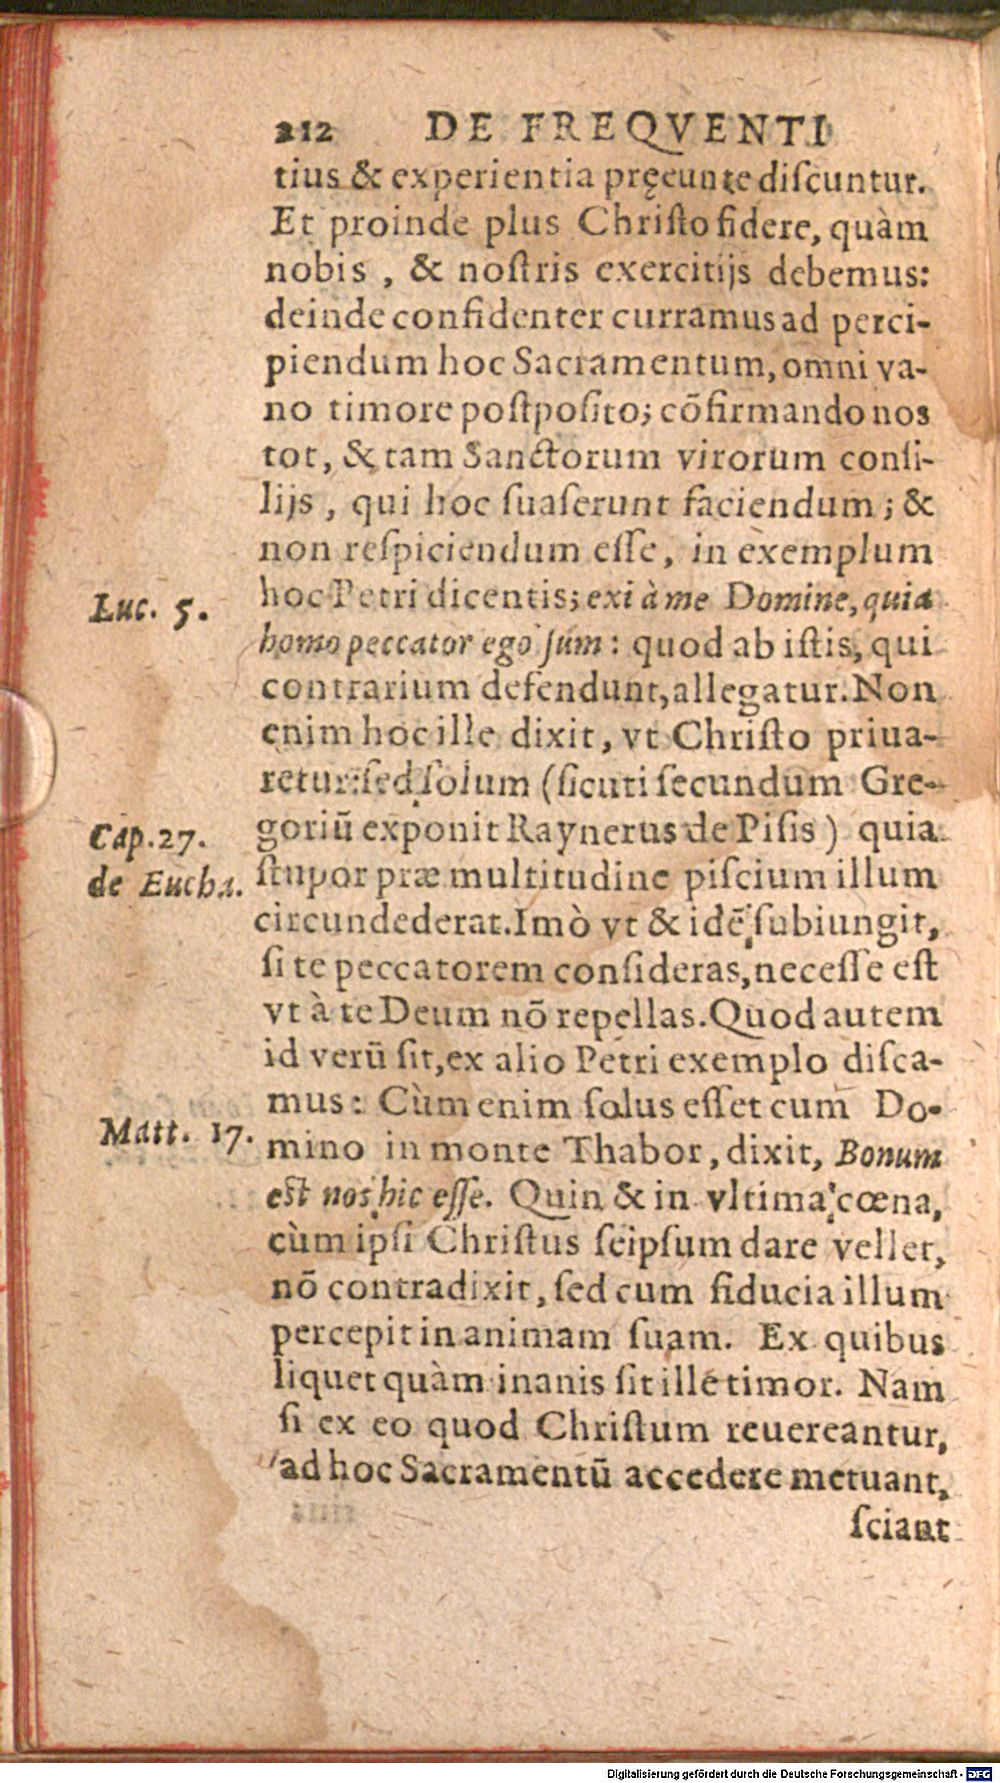 212 DE FREQVENTI
tius & experientia pręeunte diſcuntur.
Et proinde plus Chriſto fidere, quàm
nobis, & noſtris exercitijs debemus:
deinde confidenter curramus ad perci-
piendum hoc Sacramentum, omni va-
no timore poſtpoſito; cõfirmando nos
tot, & tam Sanctorum virorum conſi-
lijs, qui hoc ſuaſerunt faciendum; &
non reſpiciendum eſſe, in exemplum
Luc. 5.
hoc Petri dicentis; exi à me Domine, quia
homo peccator ego ſum: quod ab iſtis, qui
contrarium defendunt, allegatur. Non
enim hoc ille dixit, vt Chriſto priua-
retur: ſed ſolum (ſicuti ſecundum Gre-
Cap. 27.
goriũ exponit Raynerus de Piſis) quia
de Eucha.
ſtupor præ multitudine piſcium illum
circundederat. Imò vt & idẽ ſubiungit,
ſi te peccatorem conſideras, neceſſe eſt
vt à te Deum nõ repellas. Quod autem
id verũ ſit, ex alio Petri exemplo diſca-
mus: Cùm enim ſolus eſſet cum Do-
Matt. 17.
mino in monte Thabor, dixit, Bonum
eſt nos hic eſſe. Quin & in vltima cœna,
cùm ipſi Chriſtus ſeipſum dare vellet,
nõ contradixit, ſed cum fiducia illum
percepit in animam ſuam. Ex quibus
liquet quàm inanis ſit ille timor. Nam
ſi ex eo quod Chriſtum reuereantur,
ad hoc Sacramentũ accedere metuant,
ſciant
Digitalisierung gefördert durch die Deutsche Forschungsgemeinschaft - DFG